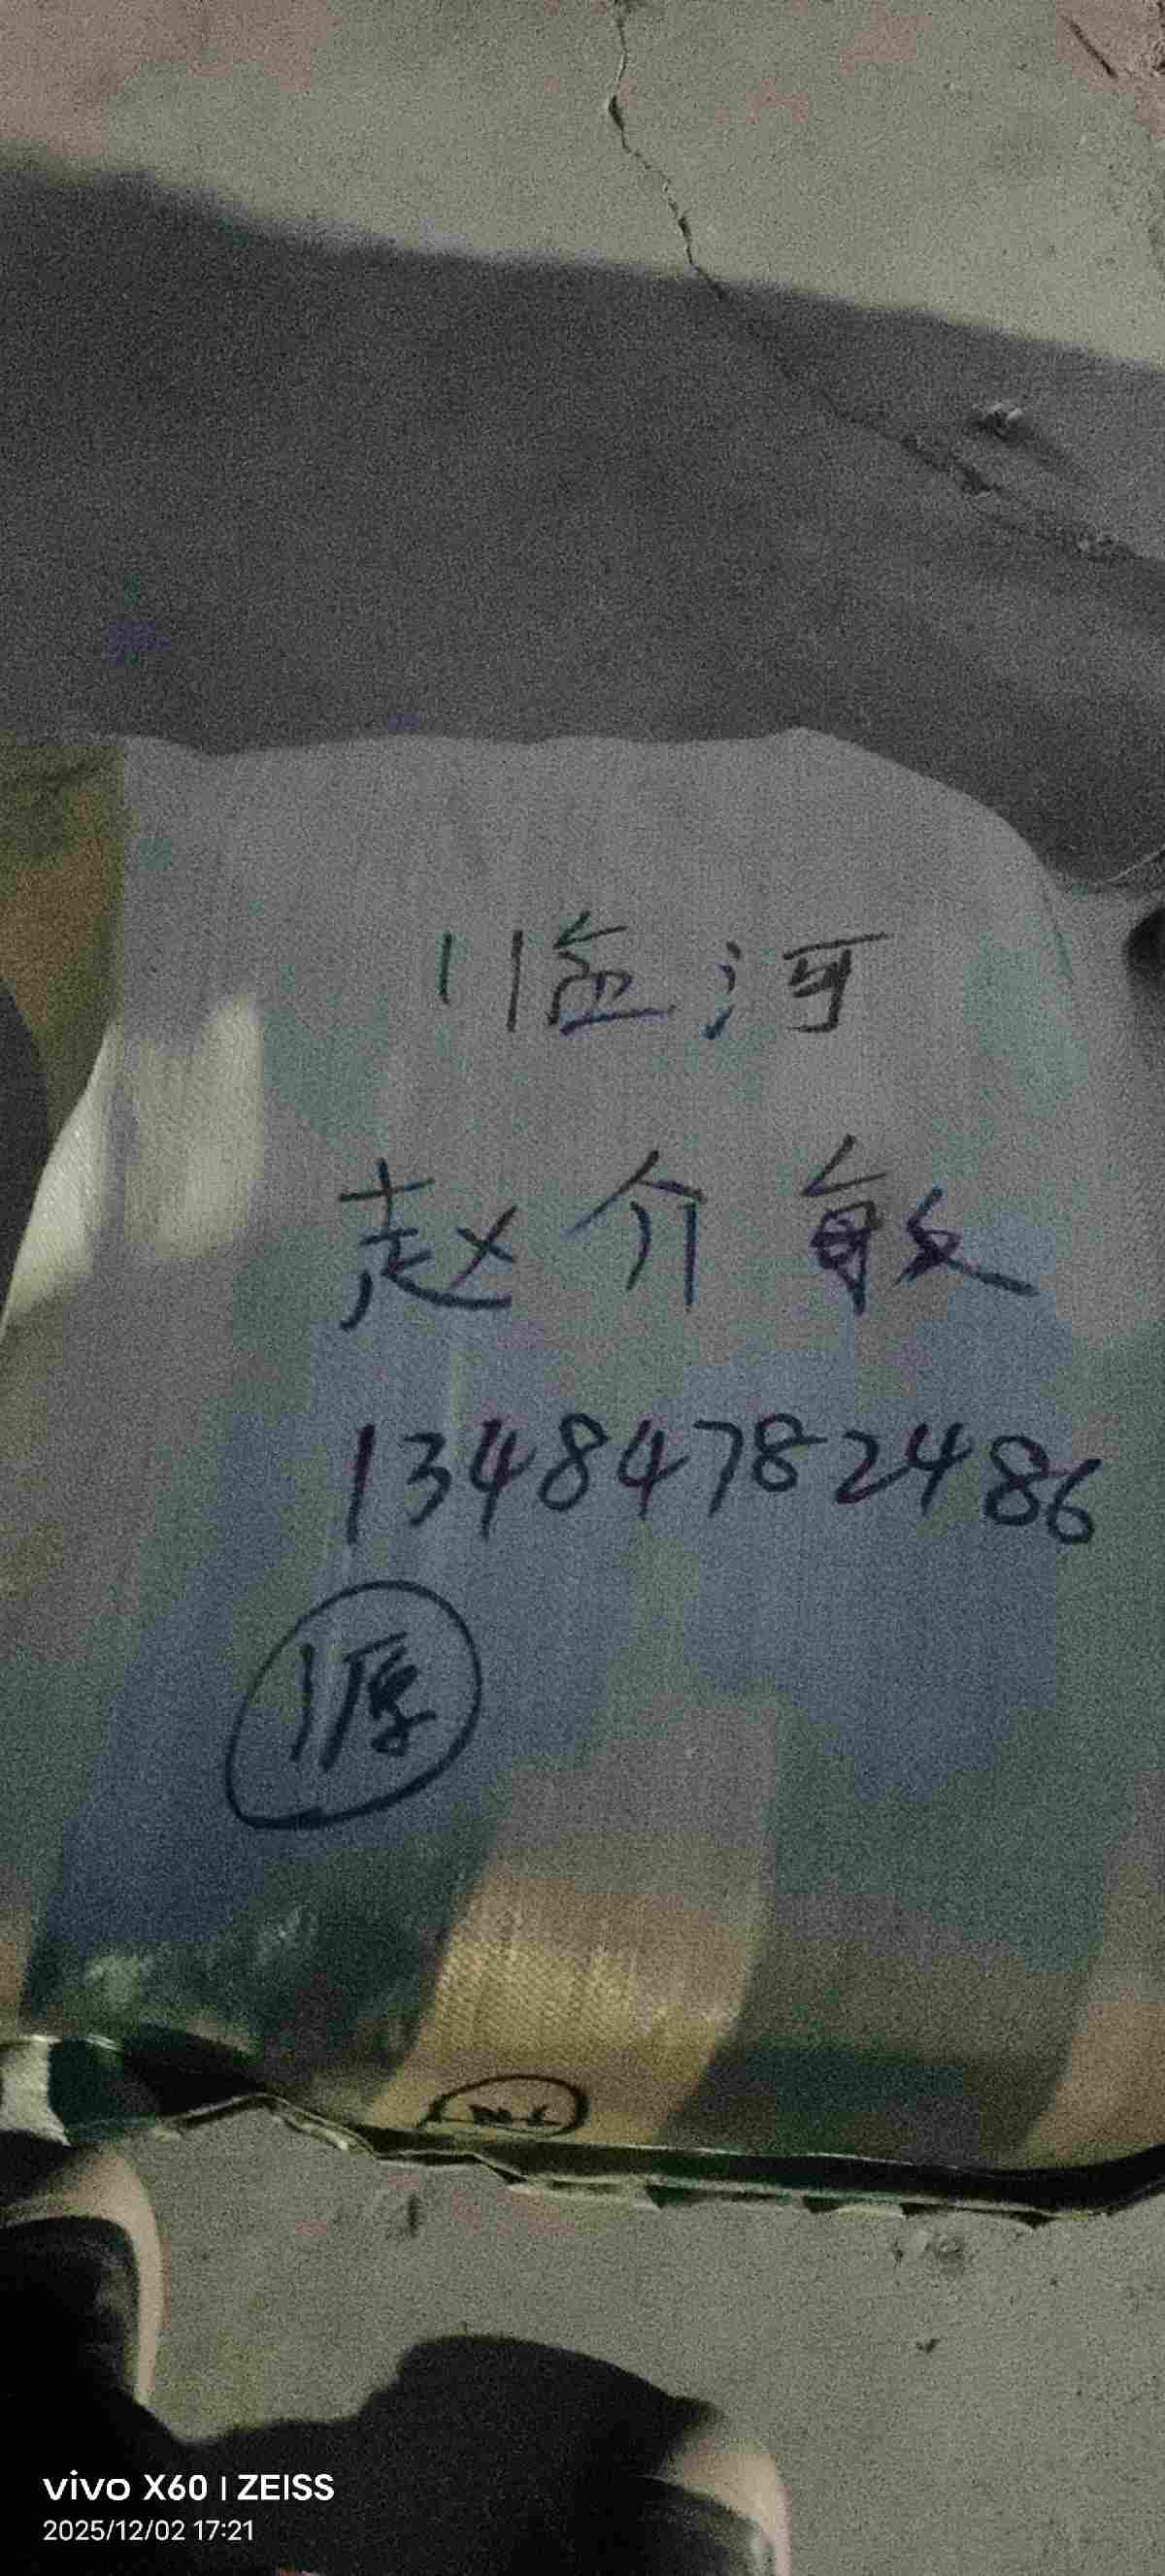 临河
赵介敏
13484782486
源
vivo X60 | ZEISS
2025/12/02 17:21